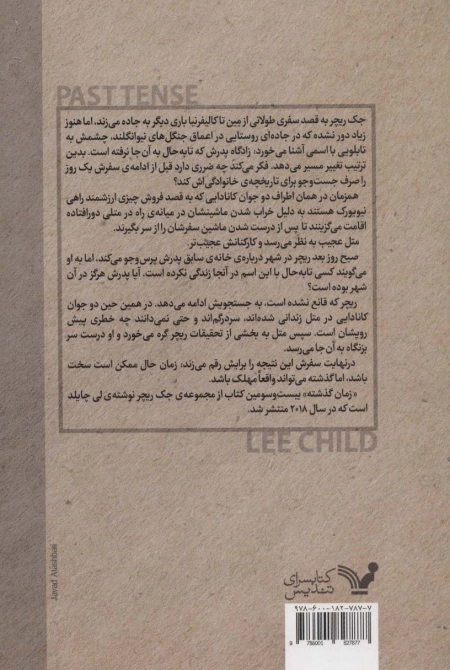 PAST TENSE
جک ریچر به قصد سفری طولانی از مِین تا کالیفرنیا باری دیگر به جاده می‌زند، اما هنوز
زیاد دور نشده که در جاده‌ای روستایی در اعماق جنگل‌های نیوانگلند، چشمش به
تابلویی با اسمی آشنا می‌خورد: زادگاه پدرش که تابه‌حال به آن‌جا نرفته است. بدین
ترتیب تغییر مسیر می‌دهد. فکر می‌کند چه ضرری دارد قبل از ادامه‌ی سفرش یک روز
را صرف جست‌وجو برای تاریخچه‌ی خانوادگی‌اش کند؟
همزمان در همان اطراف دو جوان کانادایی که به قصد فروش چیزی ارزشمند راهی
نیویورک هستند به دلیل خراب شدن ماشینشان در میانه‌ی راه در متلی دورافتاده
اقامت می‌گزینند تا پس از درست شدن ماشین سفرشان را از سر بگیرند.
متل عجیب به نظر می‌رسد و کارکنانش عجیب‌تر.
صبح روز بعد ریچر در شهر درباره‌ی خانه‌ی سابق پدرش پرس‌وجو می‌کند، اما به او
می‌گویند کسی تابه‌حال با این اسم در آنجا زندگی نکرده است. آیا پدرش هرگز در آن
شهر بوده است؟
ریچر که قانع نشده است، به جستجویش ادامه می‌دهد. در همین حین دو جوان
کانادایی در متل زندانی شده‌اند، سردرگم‌اند و حتی نمی‌دانند چه خطری پیش
رویشان است. سپس متل به بخشی از تحقیقات ریچر گره می‌خورد و او درست سر
بزنگاه به آن‌جا می‌رسد.
درنهایت سفرش این نتیجه را برایش رقم می‌زند: زمان حال ممکن است سخت
باشد، اما گذشته می‌تواند واقعاً مهلک باشد.
«زمان گذشته» بیست‌وسومین کتاب از مجموعه‌ی جک ریچر نوشته‌ی لی چایلد
است که در سال ۲۰۱۸ منتشر شد.
LEE CHILD
Javad Atashbari
کتابسرای
تندیس
۹۷۸-۶۰۰-۱۸۲-۷۸۷-۷
9 786001 827877